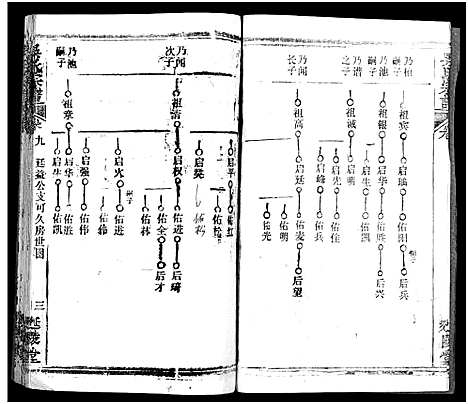 乃柏嗣子
祖宾
启瑞
佑阳
后兵
乃楨嗣子
祖銀
启华
佑胜
后兴
启生
佑凯
乃谱之子
祖诚
启光
佑佳
启峰
佑兵
乃闻长子
祖高
启廷
佑麦
后望
佑明
佑光
乃闻次子
祖浩
启平
佑红
佑松
启凳
启权
佑进
后琦
佑全
后才
佑林
启火
佑进
乃池嗣子
祖章
启强
佑伟
启华
佑胜
启生
佑凯
九
廷益公支可久房世图
三
延陵堂